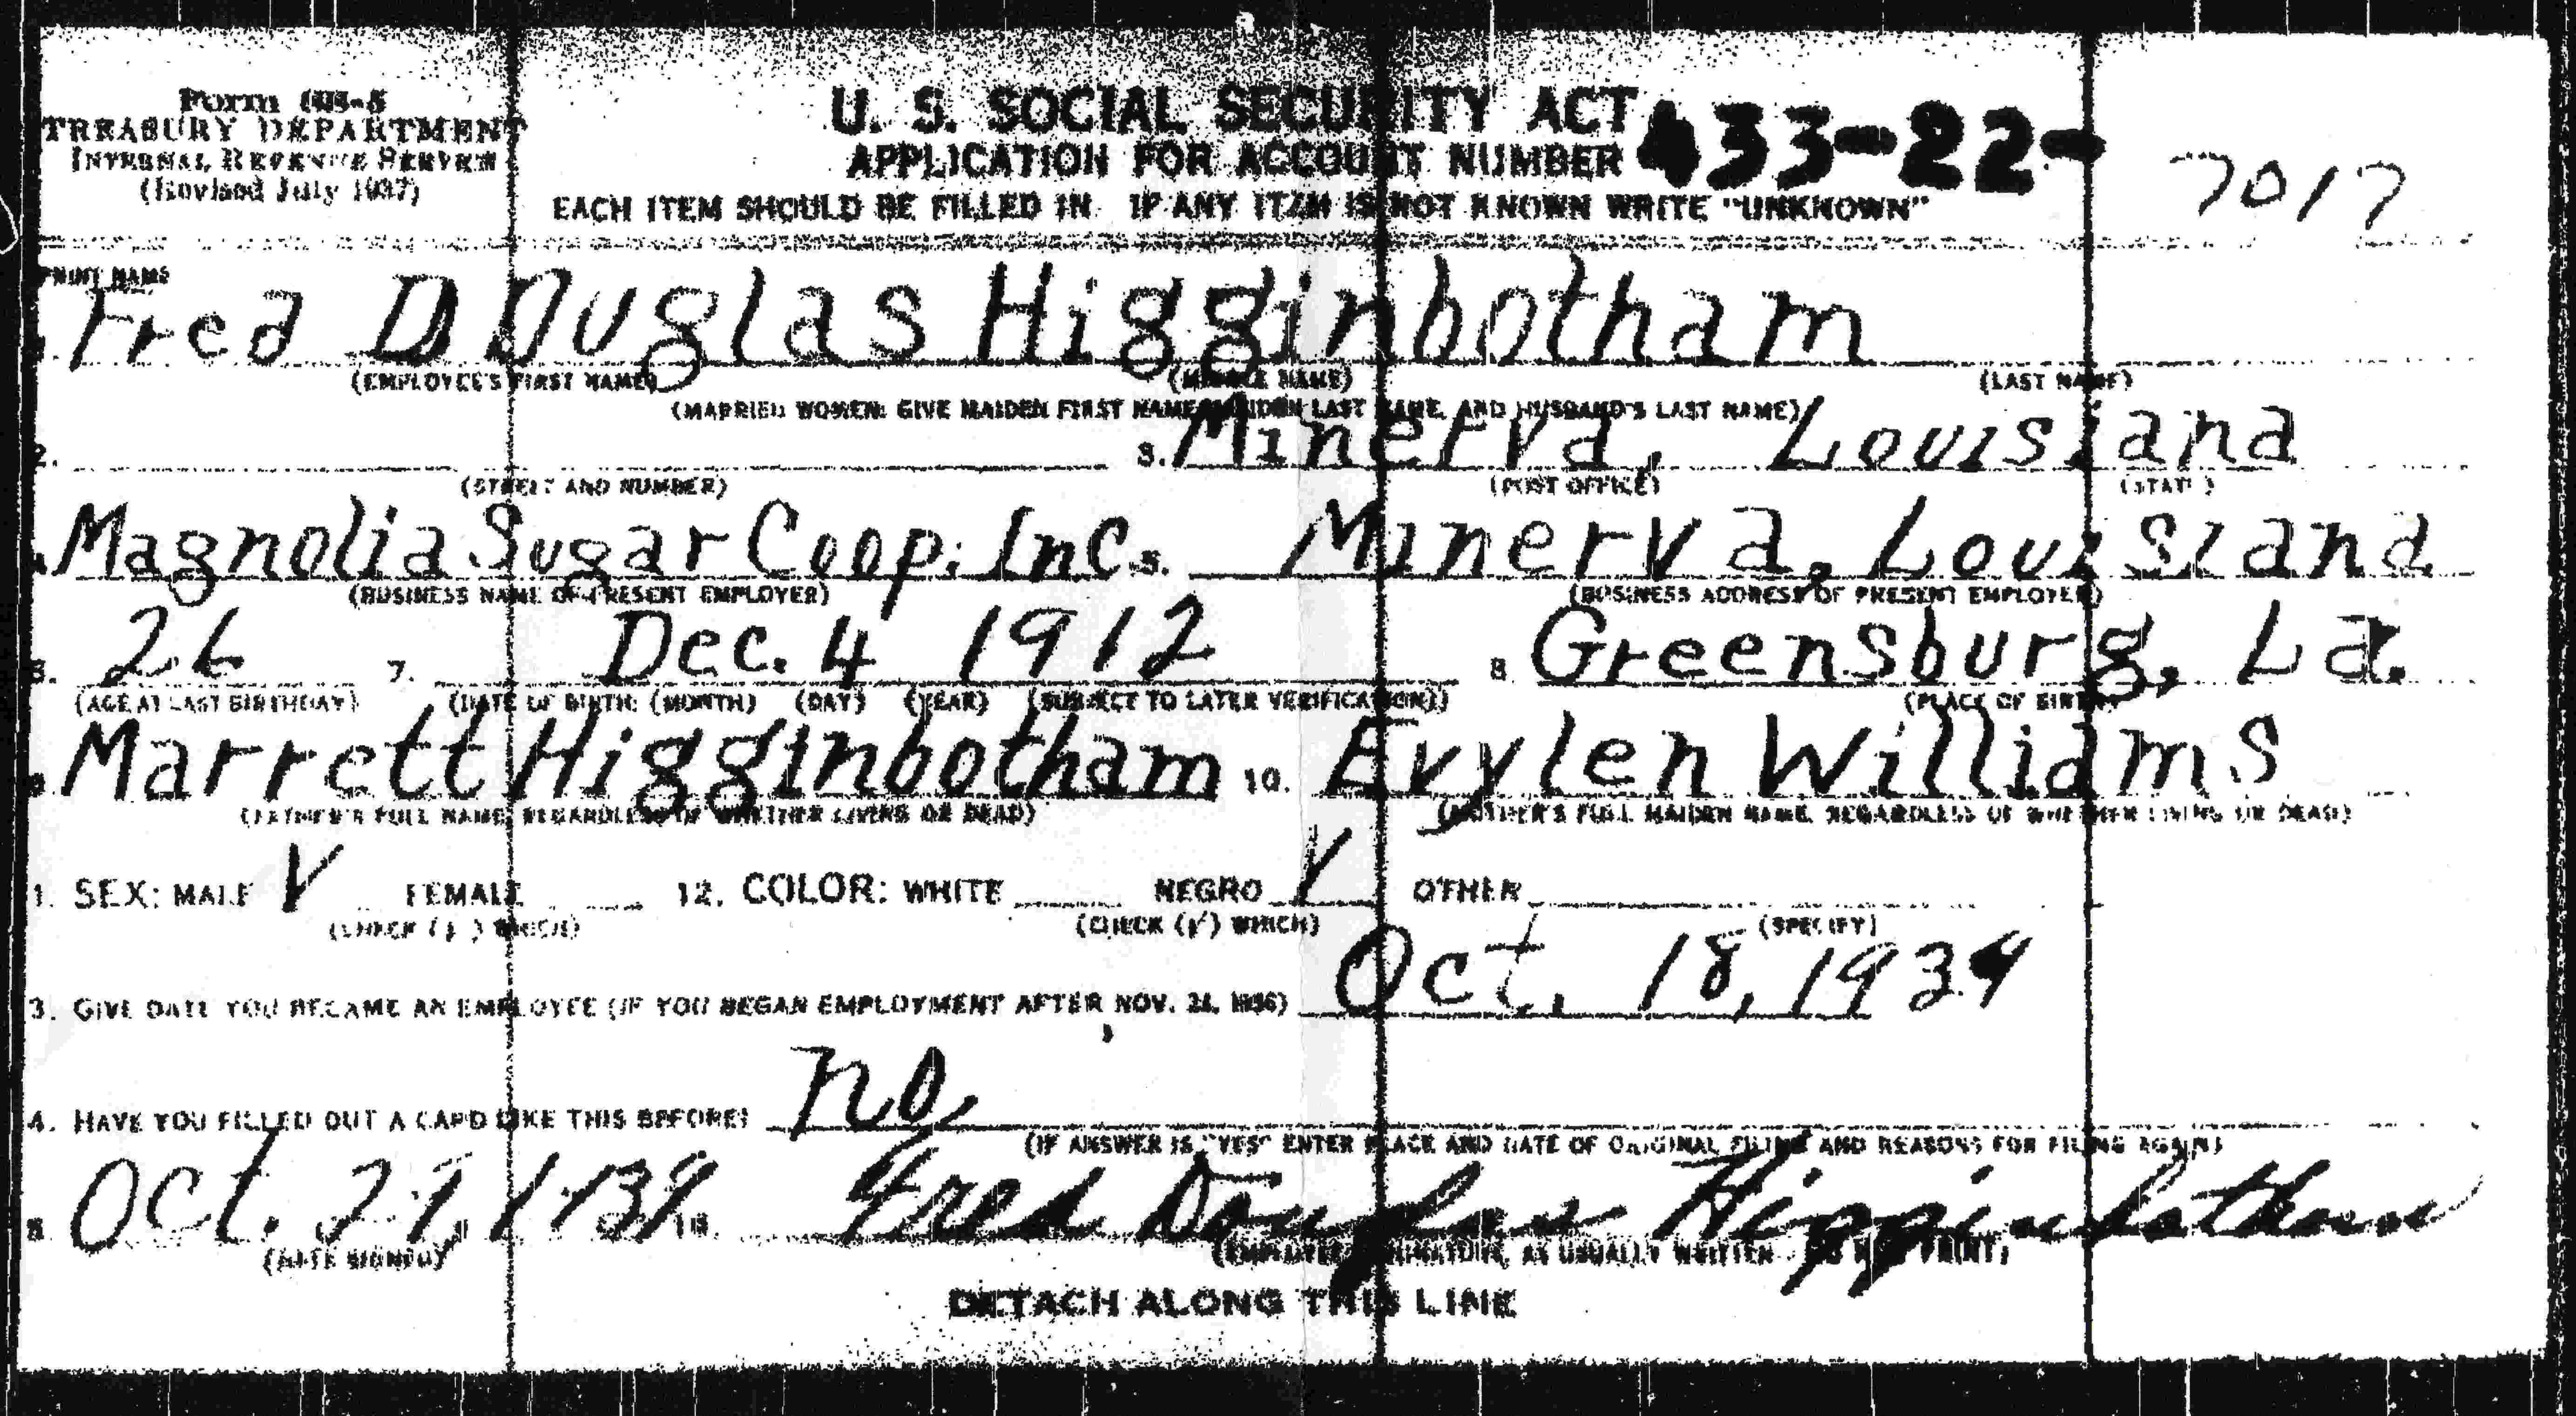 Form SS-5
TREASURY DEPARTMENT
INTERNAL REVENUE SERVICE
(Revised July 1937)
U. S. SOCIAL SECURITY ACT
APPLICATION FOR ACCOUNT NUMBER 433-22-7017
EACH ITEM SHOULD BE FILLED IN IF ANY ITEM IS NOT KNOWN WRITE "UNKNOWN"
PRINT NAME
Fred D Duglas Higginbotham
(EMPLOYEE'S FIRST NAME) (MIDDLE NAME) (LAST NAME)
(MARRIED WOMEN: GIVE MAIDEN FIRST NAME, MAIDEN LAST NAME, AND HUSBAND'S LAST NAME)
2. 3. Minerva, Louisiana
(STREET AND NUMBER) (POST OFFICE) (STATE)
Magnolia Sugar Coop. Inc. 5. Minerva, Louisiana
(BUSINESS NAME OF PRESENT EMPLOYER) (BUSINESS ADDRESS OF PRESENT EMPLOYER)
6. 26 7. Dec. 4 1912 8. Greensburg, La.
(AGE AT LAST BIRTHDAY) (DATE OF BIRTH: (MONTH) (DAY) (YEAR) (SUBJECT TO LATER VERIFICATION)) (PLACE OF BIRTH)
9. Marrett Higginbotham 10. Evylen Williams
(FATHER'S FULL NAME, REGARDLESS OF WHETHER LIVING OR DEAD) (MOTHER'S FULL MAIDEN NAME, REGARDLESS OF WHETHER LIVING OR DEAD)
1. SEX: MALE V FEMALE 12. COLOR: WHITE NEGRO V OTHER
(CHECK (√) WHICH) (CHECK (√) WHICH) (SPECIFY)
3. GIVE DATE YOU BECAME AN EMPLOYEE (IF YOU BEGAN EMPLOYMENT AFTER NOV. 24, 1936) Oct. 18, 1939
4. HAVE YOU FILLED OUT A CARD LIKE THIS BEFORE? no.
(IF ANSWER IS "YES" ENTER PLACE AND DATE OF ORIGINAL FILING AND REASONS FOR FILING AGAIN)
Oct. 1939 Fred Douglas Higginbotham
(DATE SIGNED) (EMPLOYEE'S SIGNATURE, AS USUALLY WRITTEN DO NOT PRINT)
DETACH ALONG THIS LINE